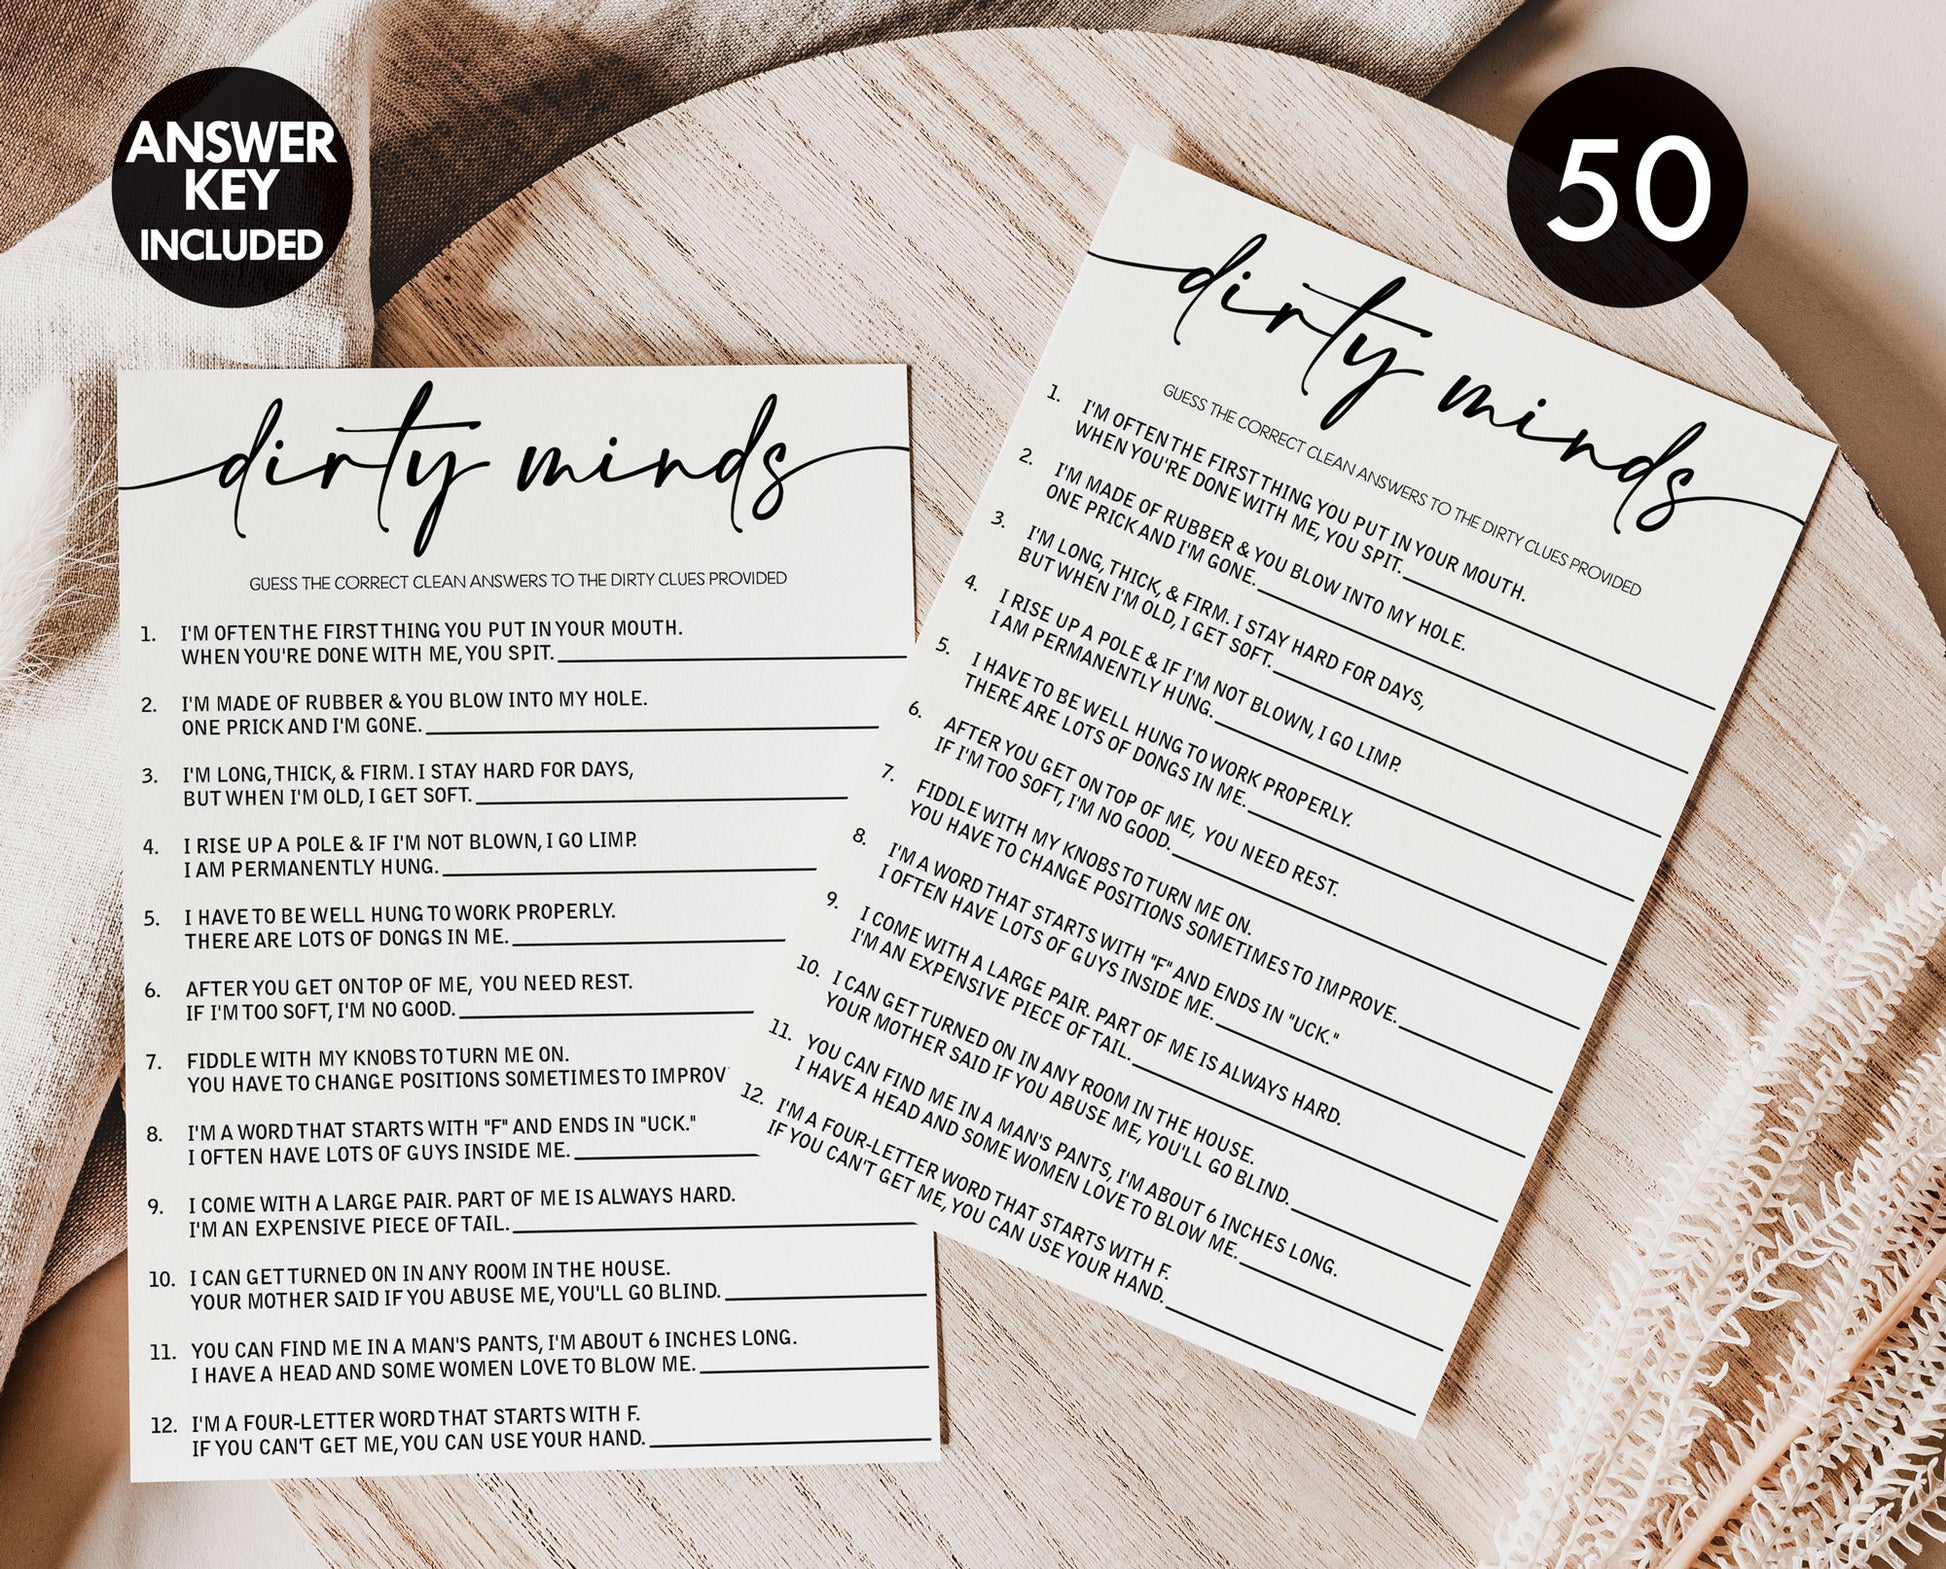 ANSWER
KEY
INCLUDED
50
dirty minds
GUESS THE CORRECT CLEAN ANSWERS TO THE DIRTY CLUES PROVIDED
1. I'M OFTEN THE FIRST THING YOU PUT IN YOUR MOUTH.
WHEN YOU'RE DONE WITH ME, YOU SPIT.
2. I'M MADE OF RUBBER & YOU BLOW INTO MY HOLE.
ONE PRICK AND I'M GONE.
3. I'M LONG, THICK, & FIRM. I STAY HARD FOR DAYS,
BUT WHEN I'M OLD, I GET SOFT.
4. I RISE UP A POLE & IF I'M NOT BLOWN, I GO LIMP.
I AM PERMANENTLY HUNG.
5. I HAVE TO BE WELL HUNG TO WORK PROPERLY.
THERE ARE LOTS OF DONGS IN ME.
6. AFTER YOU GET ON TOP OF ME, YOU NEED REST.
IF I'M TOO SOFT, I'M NO GOOD.
7. FIDDLE WITH MY KNOBS TO TURN ME ON.
YOU HAVE TO CHANGE POSITIONS SOMETIMES TO IMPROV
8. I'M A WORD THAT STARTS WITH "F" AND ENDS IN "UCK."
I OFTEN HAVE LOTS OF GUYS INSIDE ME.
9. I COME WITH A LARGE PAIR. PART OF ME IS ALWAYS HARD.
I'M AN EXPENSIVE PIECE OF TAIL.
10. I CAN GET TURNED ON IN ANY ROOM IN THE HOUSE.
YOUR MOTHER SAID IF YOU ABUSE ME, YOU'LL GO BLIND.
11. YOU CAN FIND ME IN A MAN'S PANTS, I'M ABOUT 6 INCHES LONG.
I HAVE A HEAD AND SOME WOMEN LOVE TO BLOW ME.
12. I'M A FOUR-LETTER WORD THAT STARTS WITH F.
IF YOU CAN'T GET ME, YOU CAN USE YOUR HAND.
dirty minds
GUESS THE CORRECT CLEAN ANSWERS TO THE DIRTY CLUES PROVIDED
1. I'M OFTEN THE FIRST THING YOU PUT IN YOUR MOUTH.
WHEN YOU'RE DONE WITH ME, YOU SPIT.
2. I'M MADE OF RUBBER & YOU BLOW INTO MY HOLE.
ONE PRICK AND I'M GONE.
3. I'M LONG, THICK, & FIRM. I STAY HARD FOR DAYS,
BUT WHEN I'M OLD, I GET SOFT.
4. I RISE UP A POLE & IF I'M NOT BLOWN, I GO LIMP.
I AM PERMANENTLY HUNG.
5. I HAVE TO BE WELL HUNG TO WORK PROPERLY.
THERE ARE LOTS OF DONGS IN ME.
6. AFTER YOU GET ON TOP OF ME, YOU NEED REST.
IF I'M TOO SOFT, I'M NO GOOD.
7. FIDDLE WITH MY KNOBS TO TURN ME ON.
YOU HAVE TO CHANGE POSITIONS SOMETIMES TO IMPROVE.
8. I'M A WORD THAT STARTS WITH "F" AND ENDS IN "UCK."
I OFTEN HAVE LOTS OF GUYS INSIDE ME.
9. I COME WITH A LARGE PAIR. PART OF ME IS ALWAYS HARD.
I'M AN EXPENSIVE PIECE OF TAIL.
10. I CAN GET TURNED ON IN ANY ROOM IN THE HOUSE.
YOUR MOTHER SAID IF YOU ABUSE ME, YOU'LL GO BLIND.
11. YOU CAN FIND ME IN A MAN'S PANTS, I'M ABOUT 6 INCHES LONG.
I HAVE A HEAD AND SOME WOMEN LOVE TO BLOW ME.
12. I'M A FOUR-LETTER WORD THAT STARTS WITH F.
IF YOU CAN'T GET ME, YOU CAN USE YOUR HAND.